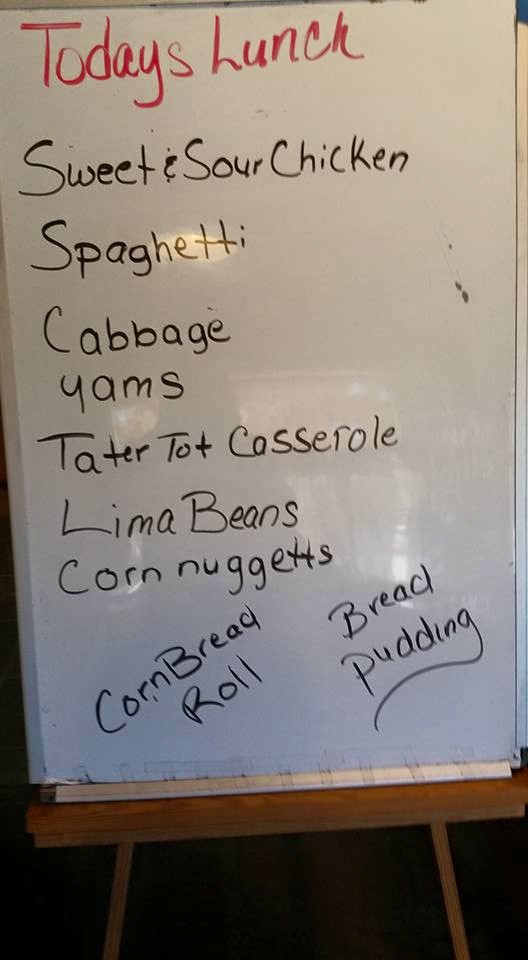 Todays Lunch
Sweet & Sour Chicken
Spaghetti
Cabbage
yams
Tater Tot Casserole
Lima Beans
Corn nuggetts
CornBread
Roll
Bread
pudding